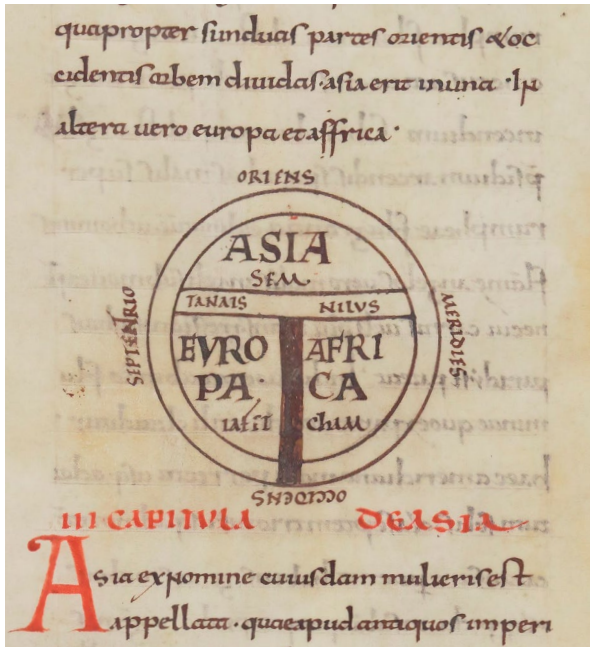 quapropter si in duas partes orientis & oc
cidentis orbem dividas · asia erit in una · In
altera vero europa et affrica ·
ORIENS
ASIA
SEM
TANAIS NILUS
SEPTENTRIO
MERIDIES
EVRO AFRI
PA · CA
iafet cham
OCCIDENS
III CAPITULA DE ASIA
Asia ex nomine cuiusdam mulieris est
appellata · quae apud antiquos imperi